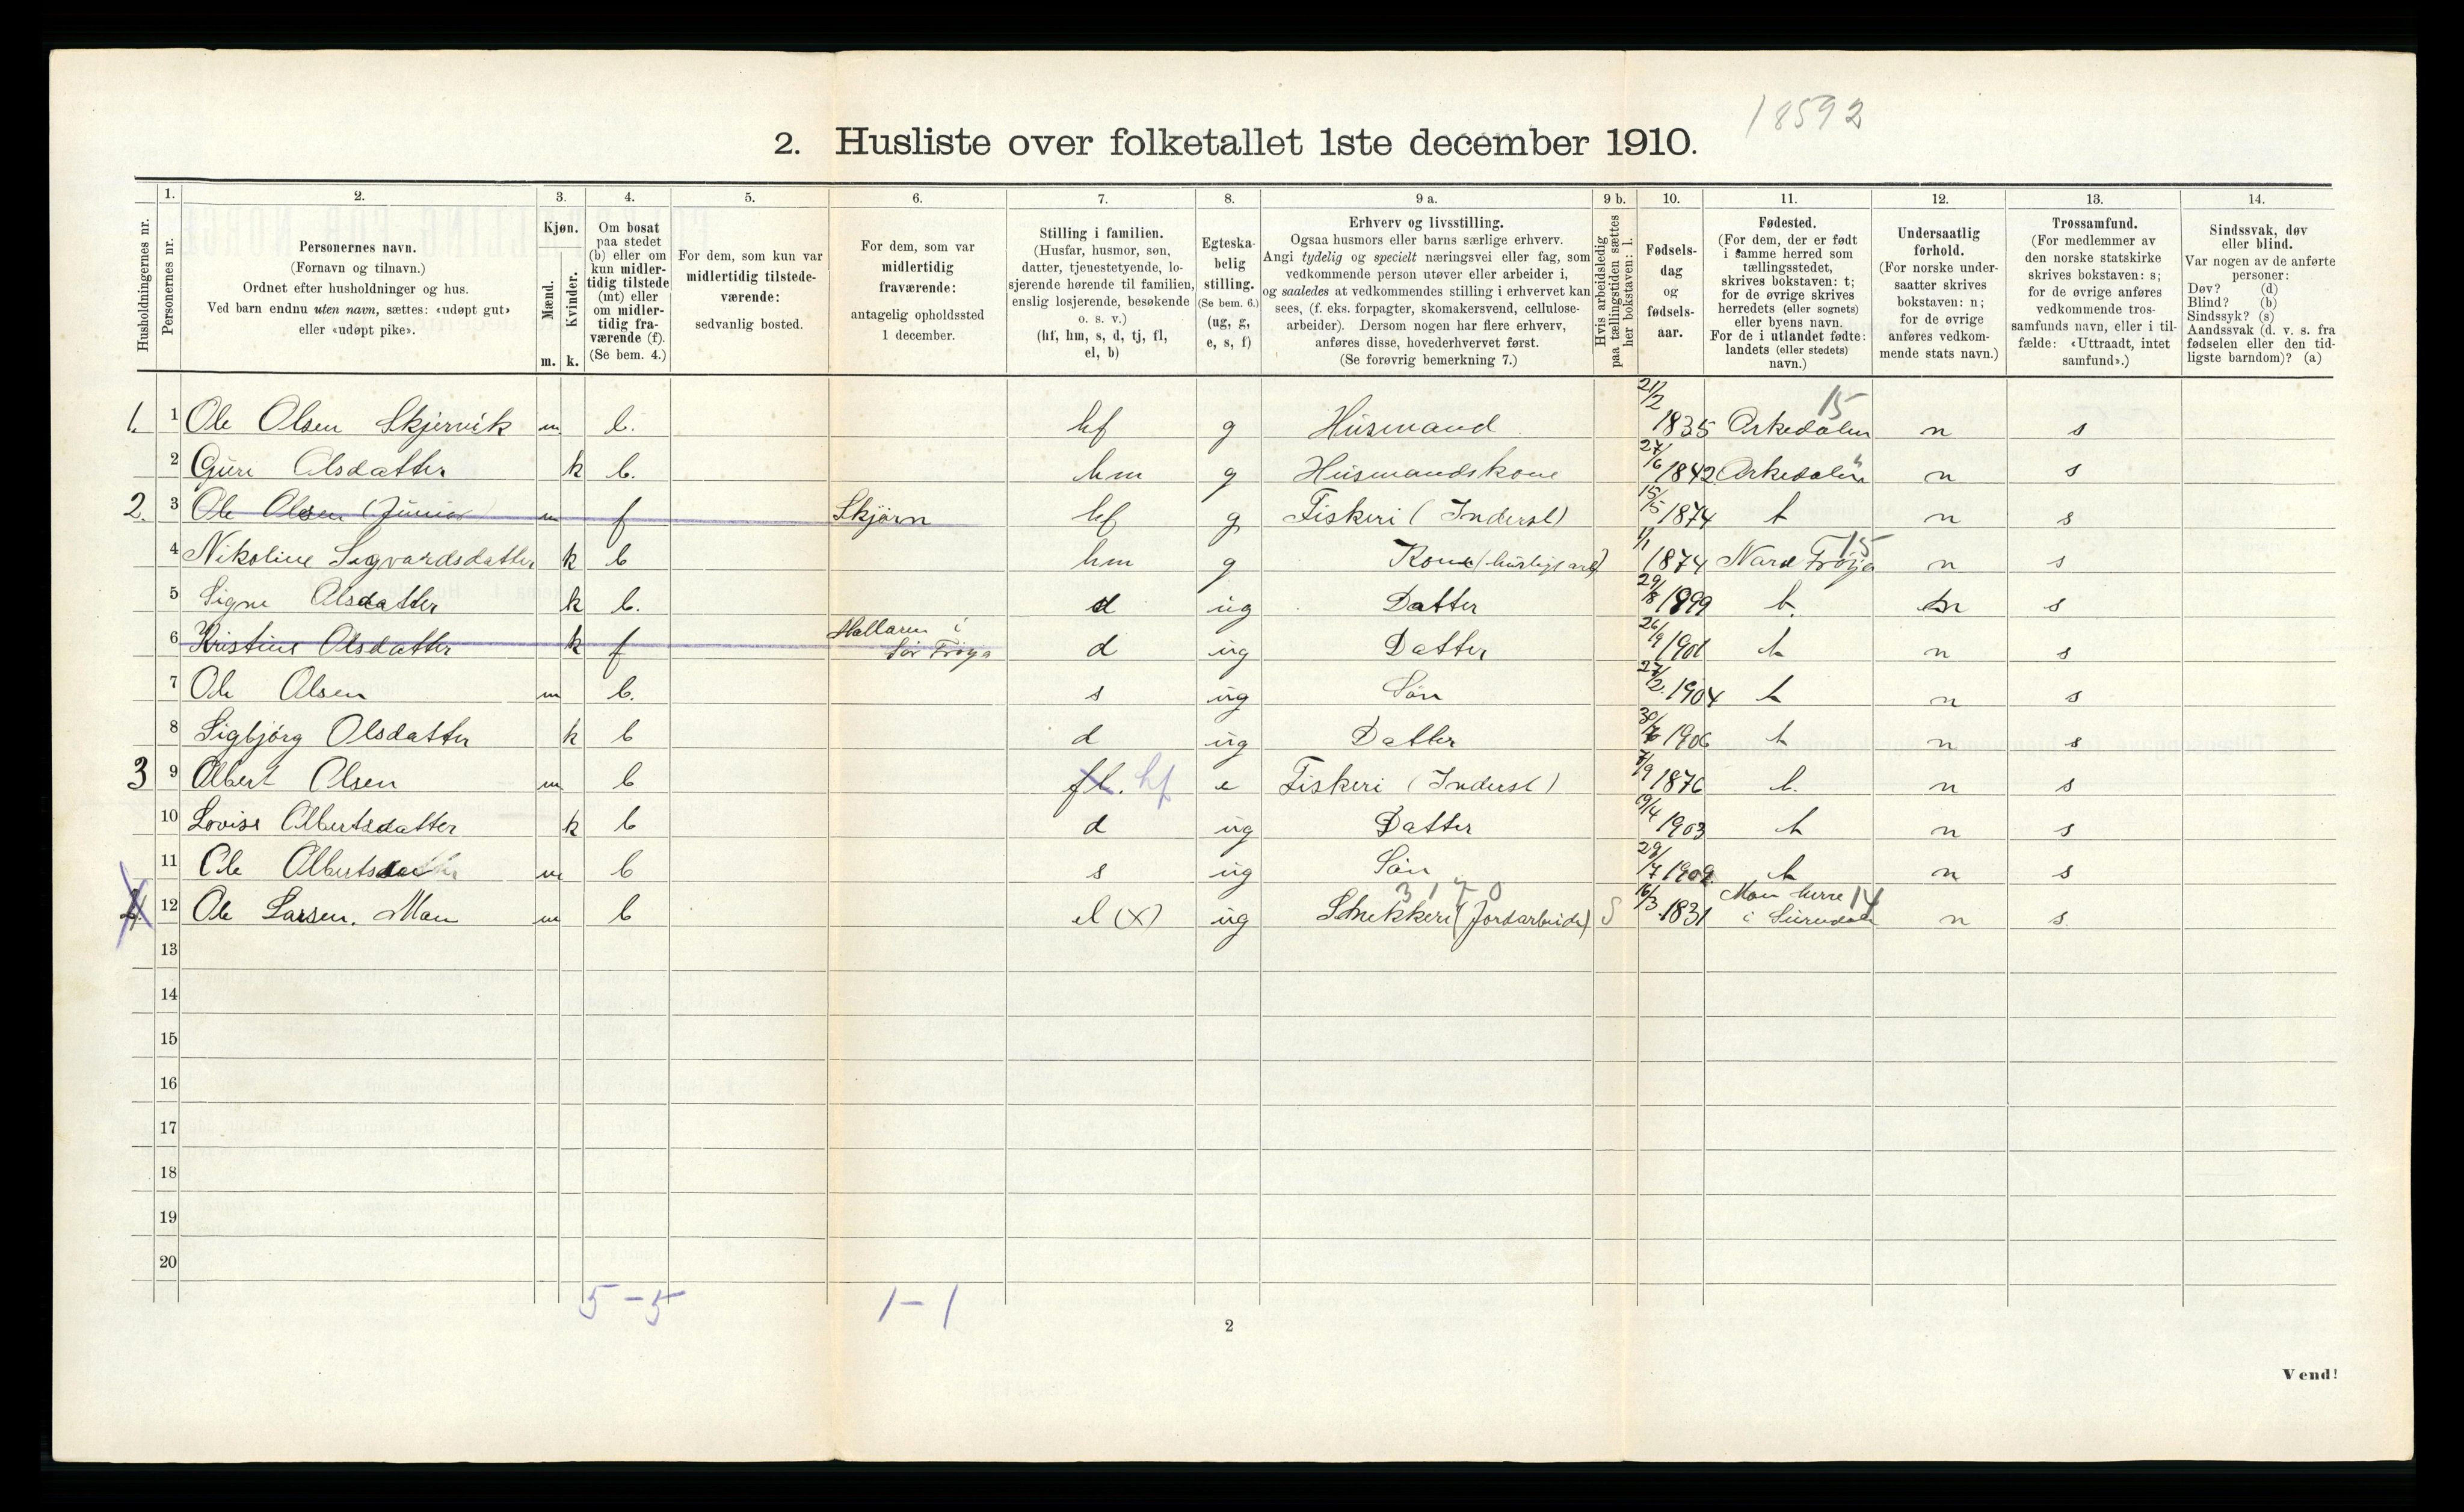 18592
2. Husliste over folketallet 1ste december 1910.
Husholdningernes nr.
1.
Personernes nr.
2.
Personernes navn.
(Fornavn og tilnavn.)
Ordnet efter husholdninger og hus.
Ved barn endnu uten navn, sættes: «udøpt gut»
eller «udøpt pike».
3.
Kjøn.
Mænd.
Kvinder.
m. k.
4.
Om bosat
paa stedet
(b) eller om
kun midler-
tidig tilstede
(mt) eller
om midler-
tidig fra-
værende (f).
(Se bem. 4.)
5.
For dem, som kun var
midlertidig tilstede-
værende:
sedvanlig bosted.
6.
For dem, som var
midlertidig
fraværende:
antagelig opholdssted
1 december.
7.
Stilling i familien.
(Husfar, husmor, søn,
datter, tjenestetyende, lo-
sjerende hørende til familien,
enslig losjerende, besøkende
o. s. v.)
(hf, hm, s, d, tj, fl,
el, b)
8.
Egteska-
belig
stilling.
(Se bem. 6.)
(ug, g,
e, s, f)
9 a.
Erhverv og livsstilling.
Ogsaa husmors eller barns særlige erhverv.
Angi tydelig og specielt næringsvei eller fag, som
vedkommende person utøver eller arbeider i,
og saaledes at vedkommendes stilling i erhvervet kan
sees, (f. eks. forpagter, skomakersvend, cellulose-
arbeider). Dersom nogen har flere erhverv,
anføres disse, hovederhvervet først.
(Se forøvrig bemerkning 7.)
9 b.
Hvis arbeidsledig
paa tællingstiden sættes
her bokstaven: l.
10.
Fødsels-
dag
og
fødsels-
aar.
11.
Fødested.
(For dem, der er født
i samme herred som
tællingsstedet,
skrives bokstaven: t;
for de øvrige skrives
herredets (eller sognets)
eller byens navn.
For de i utlandet fødte:
landets (eller stedets)
navn.)
12.
Undersaatlig
forhold.
(For norske under-
saatter skrives
bokstaven: n;
for de øvrige
anføres vedkom-
mende stats navn.)
13.
Trossamfund.
(For medlemmer av
den norske statskirke
skrives bokstaven: s;
for de øvrige anføres
vedkommende tros-
samfunds navn, eller i til-
fælde: «Uttraadt, intet
samfund».)
14.
Sindssvak, døv
eller blind.
Var nogen av de anførte
personer:
Døv? (d)
Blind? (b)
Sindssyk? (s)
Aandssvak (d. v. s. fra
fødselen eller den tid-
ligste barndom)? (a)
1. 1 Ole Olsen Skjervik m b. hf g Husmand 21/2 1835 Orkedalen 15 n s
2 Guri Olsdatter k b. hm g Husmandskone 27/6 1842 Orkedalen n s
2. 3 Ole Olsen (Junior) m f Skjørn hf g Fiskeri (Inderst) 15/5 1874 t n s
4 Nikoline Sigvardsdatter k b hm g Kone (husligt arb) 1/1 1874 Nord Frøya 15 n s
5 Signe Olsdatter k b. d ug Datter 29/8 1899 t. n s
6 Kristine Olsdatter k f Hallaren i Sør Frøya d ug Datter 26/9 1901 t n s
7 Ole Olsen m b. s ug Søn 27/2. 1904 t n s
8 Sigbjørg Olsdatter k b d ug Datter 30/6 1906 t n s
3 9 Albert Olsen m b fl. hf e Fiskeri (Inderst) 7/9 1876 t. n s
10 Lovise Albertsdatter k b d ug Datter 19/4 1903 t n s
11 Ole Albertsdatter m b s ug Søn 28/7 1909 t n s
4 12 Ole Larsen. Moen m b el (x) ug Snekkeri (Jordarbeide) 3170 S 16/3 1831 Moen i Surendalen 14 n s.
13
14
15
16
17
18
19
20
5 - 5 1 - 1
2
Vend!